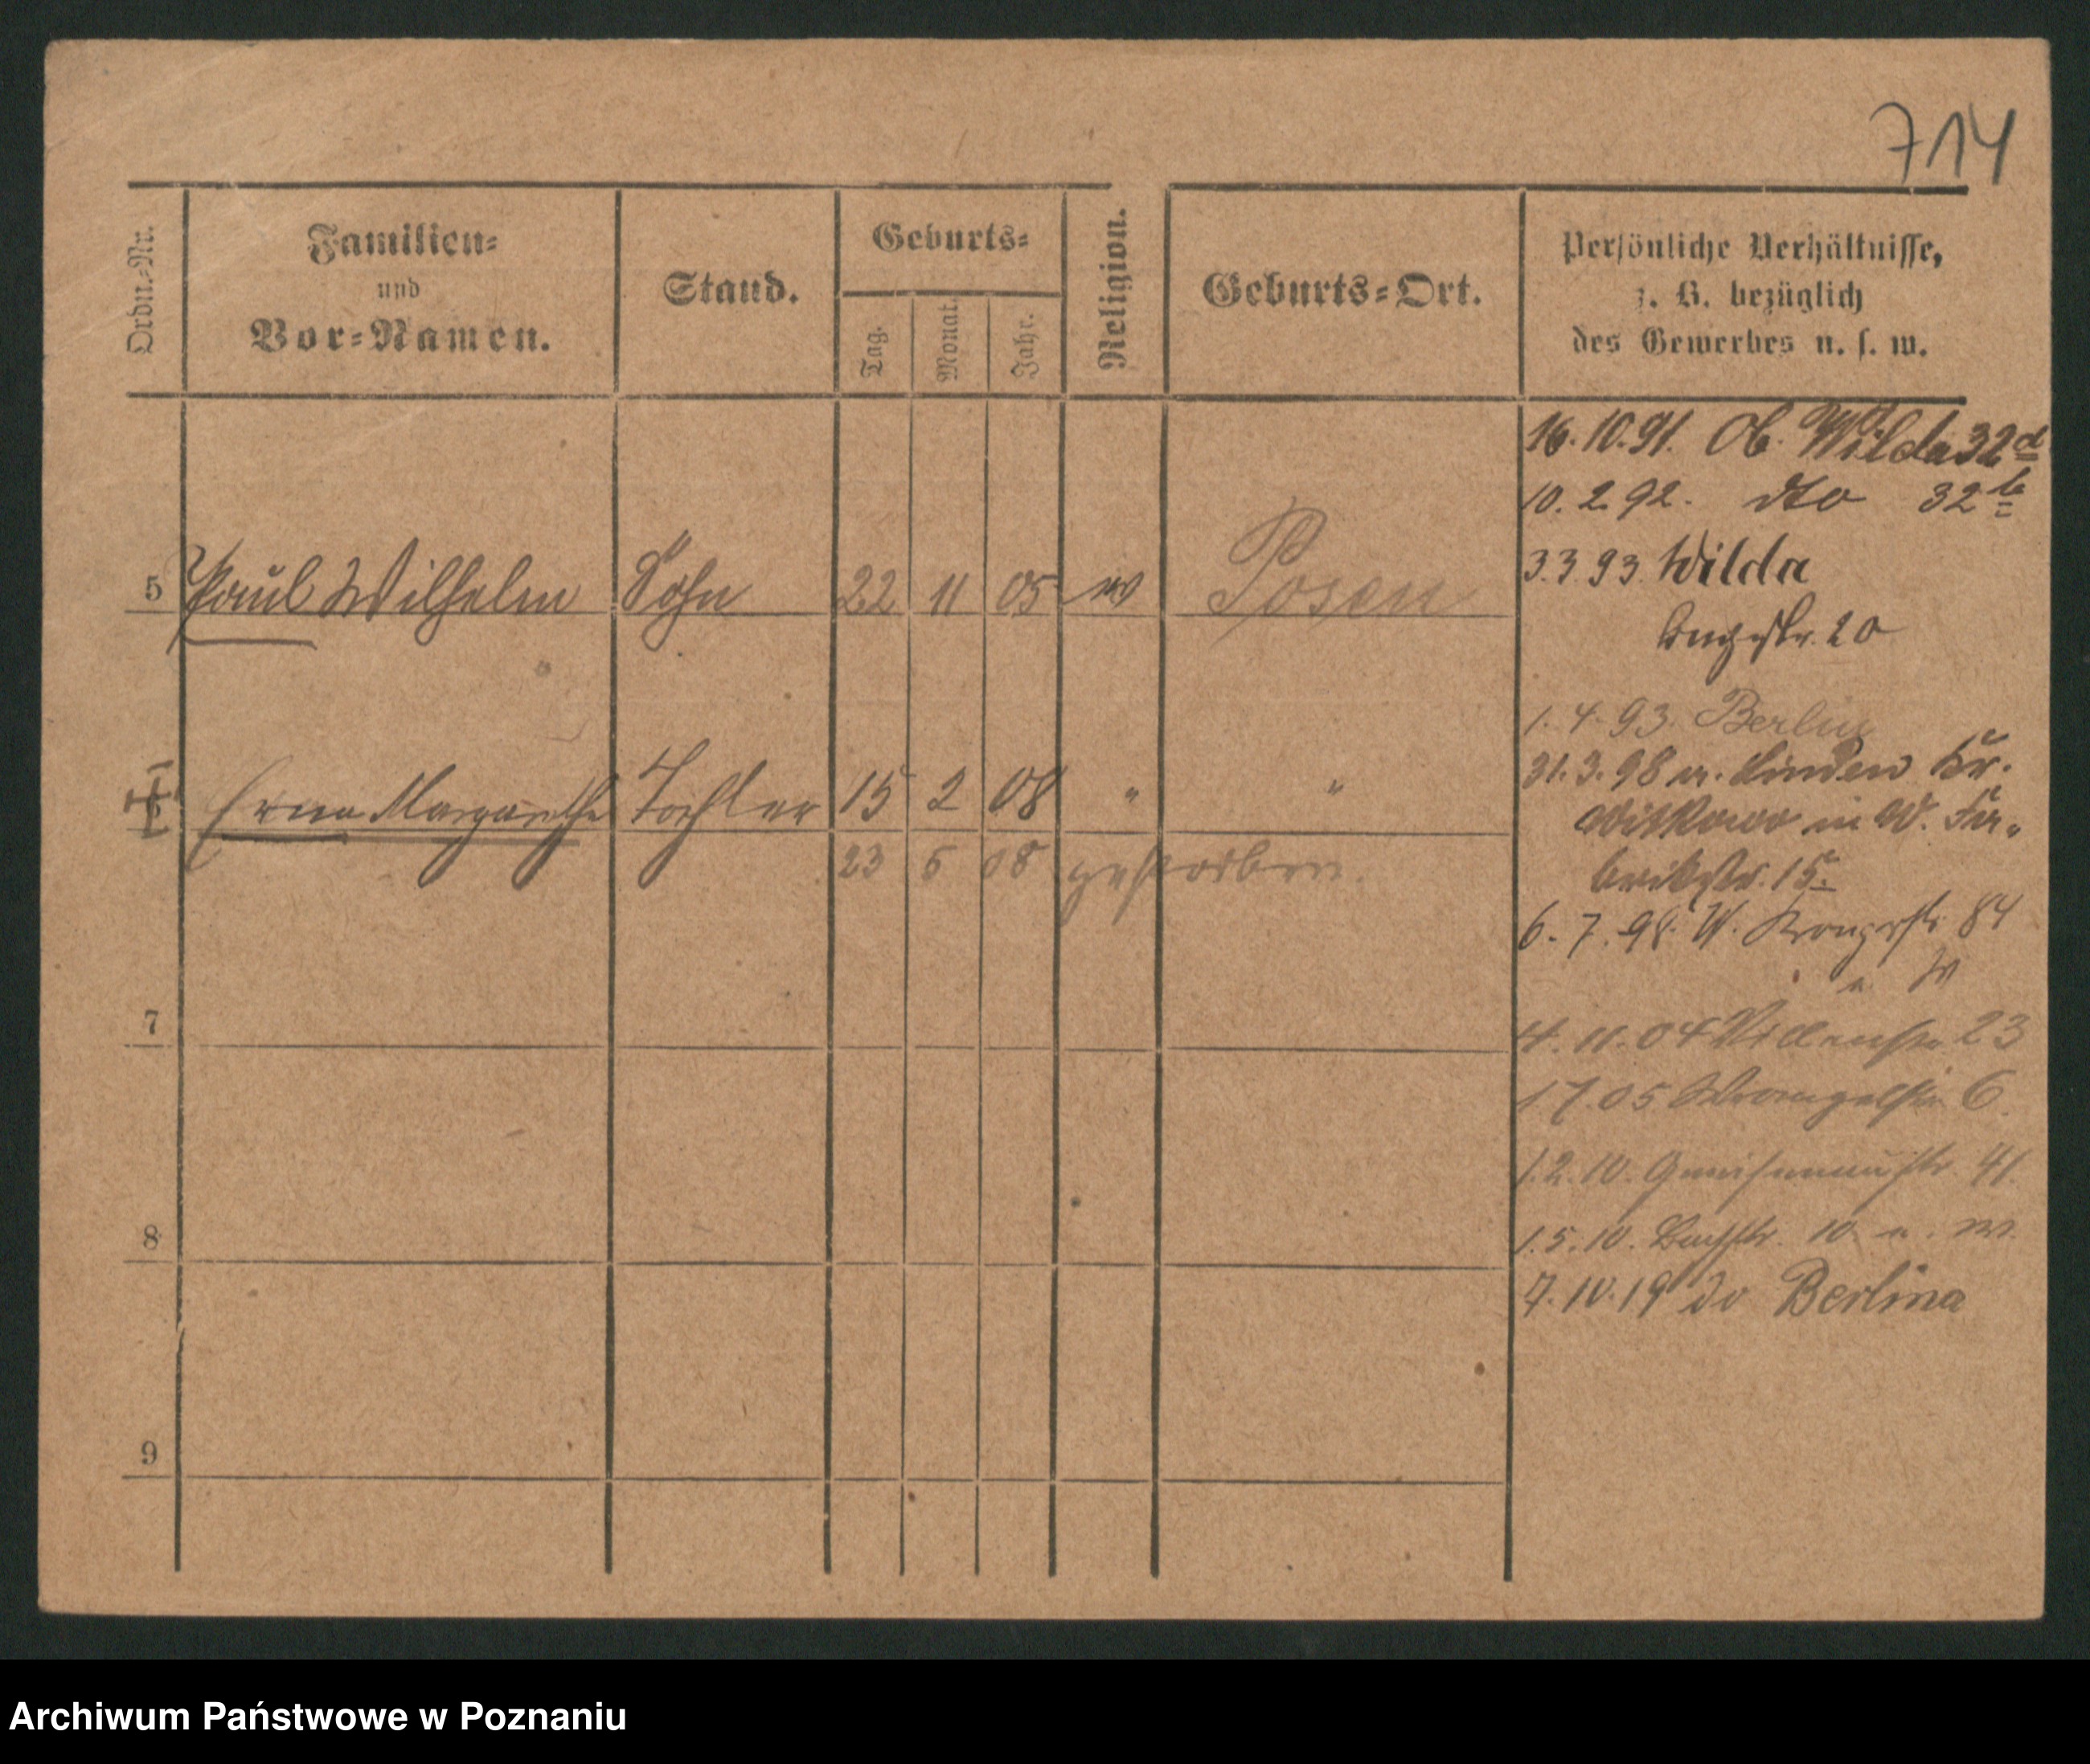 714
Ordn.-Nr.
Familien-
und
Vor-Namen.
Stand.
Geburts-
Tag.
Monat.
Jahr.
Religion.
Geburts-Ort.
Persönliche Verhältnisse,
z. B. bezüglich
des Gewerbes u. s. w.
16.10.91. Ob. Wilda 32d
10.2.92. dto 32b
5 Paul Wilhelm Sohn 22 11 05 Posen
3.3.93. Wilda
20
1.4.93. Berlin
6 Erna Margarethe Tochter 15 2 08 " "
31.3.98 Kr.
Witkowo in W. Fa-
brikstr. 15.
23 5 08 gestorben.
6.7.98. W. 84
7
4.11.04 23
1.7.05 Wrangelstr. 6.
1.2.10. Gneisenaustr. 41.
8
1.5.10. 10
7.10.19 do Berlina
9
Archiwum Państwowe w Poznaniu